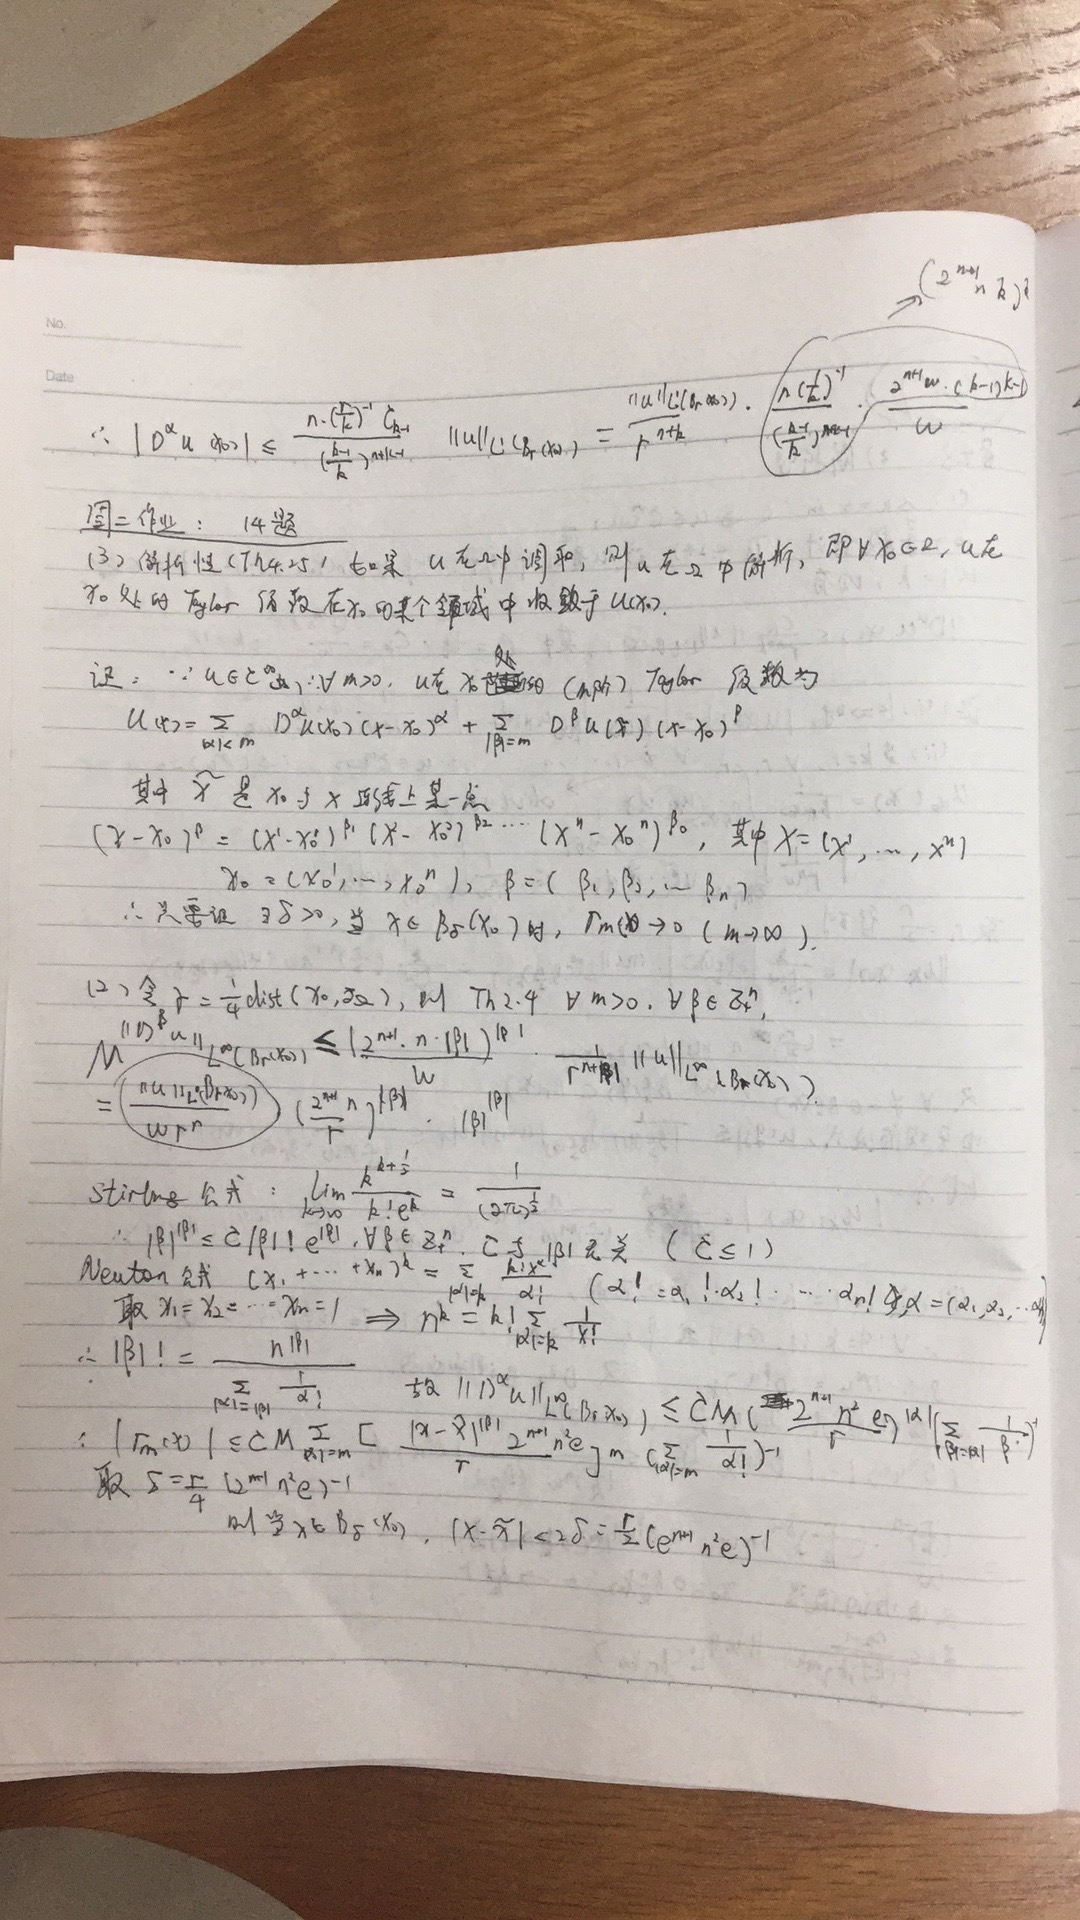 (2^{n+1} n k)^k
No.
Date
∴ |D^α u(x₀)| ≤ \frac{n·(\frac{r}{k})^{-1} C_{k-1}}{(\frac{k-1}{k})^{n+k-1}} ||u||_{L^1(B_r(x_0))} = \frac{||u||_{L^1(B_r(x_0))}}{r^{n+k}} · \frac{n(\frac{1}{k})^{-1}}{(\frac{k-1}{k})^{n+k-1}} · \frac{2^{n+1} ω·(k-1)^{k-1}}{ω}
周二作业: 14题
(3) 解析性(Th4.25) 如果 u在Ω中调和, 则u在Ω中解析, 即∀x₀∈Ω, u在
x₀处的Taylor级数在x₀的某个领域中收敛于u(x₀).
证: ∵ u∈C^∞, ∴∀m>0. u在x₀处的(m阶) Taylor 级数为
u(x)= \sum_{|α|<m} D^α u(x₀)(x-x₀)^α + \sum_{|β|=m} D^β u(\tilde{x})(x-x₀)^β
其中 \tilde{x} 是x₀与x连线上某一点
(x-x₀)^β = (x^1-x_0^1)^{β_1} (x^2-x_0^2)^{β_2} ···· (x^n-x_0^n)^{β_n}, 其中 x=(x^1, ..., x^n)
x₀=(x_0^1, ..., x_0^n), β=(β_1, β_2, ... β_n)
∴只要证 ∃δ>0, 当 x∈B_δ(x₀)时, r_m(x)→0 (m→∞).
(2) 令 r=\frac{1}{4}dist(x₀,∂Ω), 则 Th2.4 ∀m>0. ∀β∈Z_+^n,
||D^β u||_{L^∞(B_r(x_0))} ≤ \frac{(2^{n+1}·n·|β|)^{|β|}}{ω} · \frac{1}{r^{n+|β|}} ||u||_{L^∞(B_r(x_0))}
M
= \frac{||u||_{L^1(B_r(x_0))}}{ωr^n} (\frac{2^{n+1}n}{r})^{|β|} · |β|^{|β|}
Stirling公式: \lim_{k→∞} \frac{k^{k+\frac{1}{2}}}{k!e^k} = \frac{1}{(2π)^{\frac{1}{2}}}
∴ |β|^{|β|} ≤ C|β|! e^{|β|}, ∀β∈Z_+^n. C与|β|无关 (C≤1)
Neuton公式 (x_1+····+x_n)^k = \sum_{|α|=k} \frac{k!x^α}{α!} (α!=α_1!·α_2!· ···· α_n!, α=(α_1,α_2,···α_n))
取 x_1=x_2=···=x_n=1 ⟹ n^k = k! \sum_{|α|=k} \frac{1}{α!}
∴ |β|! = \frac{n^{|β|}}{\sum_{|α|=|β|} \frac{1}{α!}} 故 ||D^α u||_{L^∞(B_r(x_0))} ≤ CM(\frac{2^{n+1} n^2 e}{r})^{|α|} (\sum_{|β|=|α|} \frac{1}{β!})^{-1}
∴ |r_m(x)| ≤ CM \sum_{|α|=m} [\frac{|x-\tilde{x}|^{|β|} 2^{n+1} n^2 e}{r}]^m (\sum_{|α|=m} \frac{1}{α!})^{-1}
取 δ=\frac{r}{4} (2^{n+1} n^2 e)^{-1}
则当 x∈B_δ(x₀), |x-\tilde{x}|<2δ=\frac{r}{2}(e^{n+1} n^2 e)^{-1}